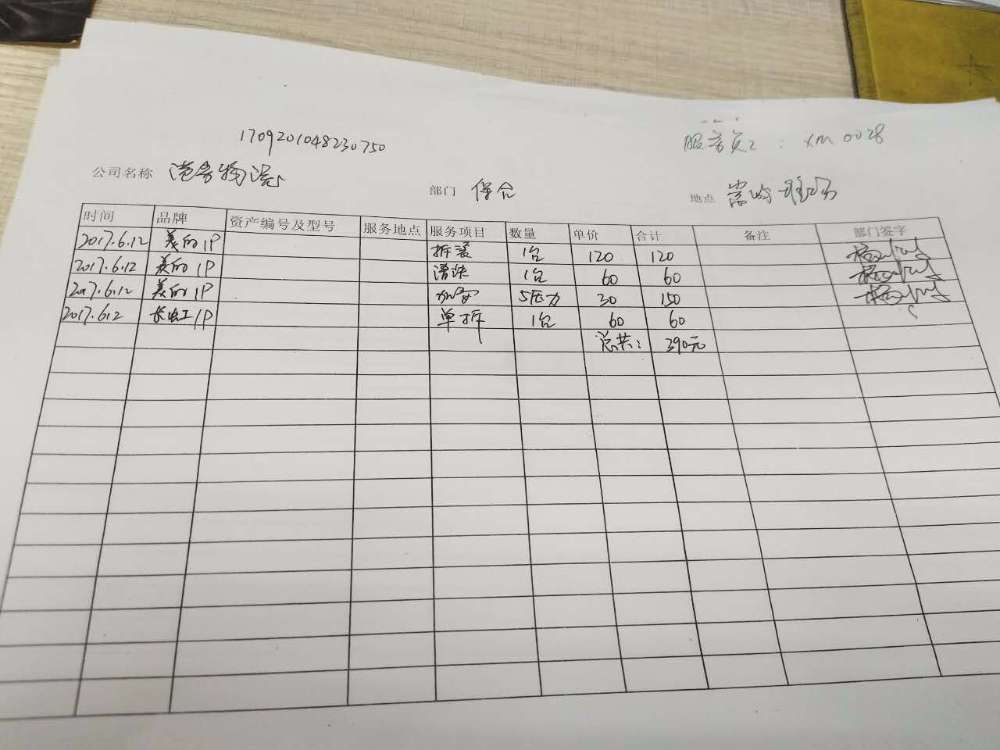 1709201048230750
服务员: XM0028
公司名称 港务物流 部门 保合 地点
时间 品牌 资产编号及型号 服务地点 服务项目 数量 单价 合计 备注 部门签字
2017.6.12 美的1P 拆装 1台 120 120
2017.6.12 美的1P 清洗 1台 60 60
2017.6.12 美的1P 加 5压力 30 150
2017.6.12 长虹1P 单拆 1台 60 60
总共: 390元